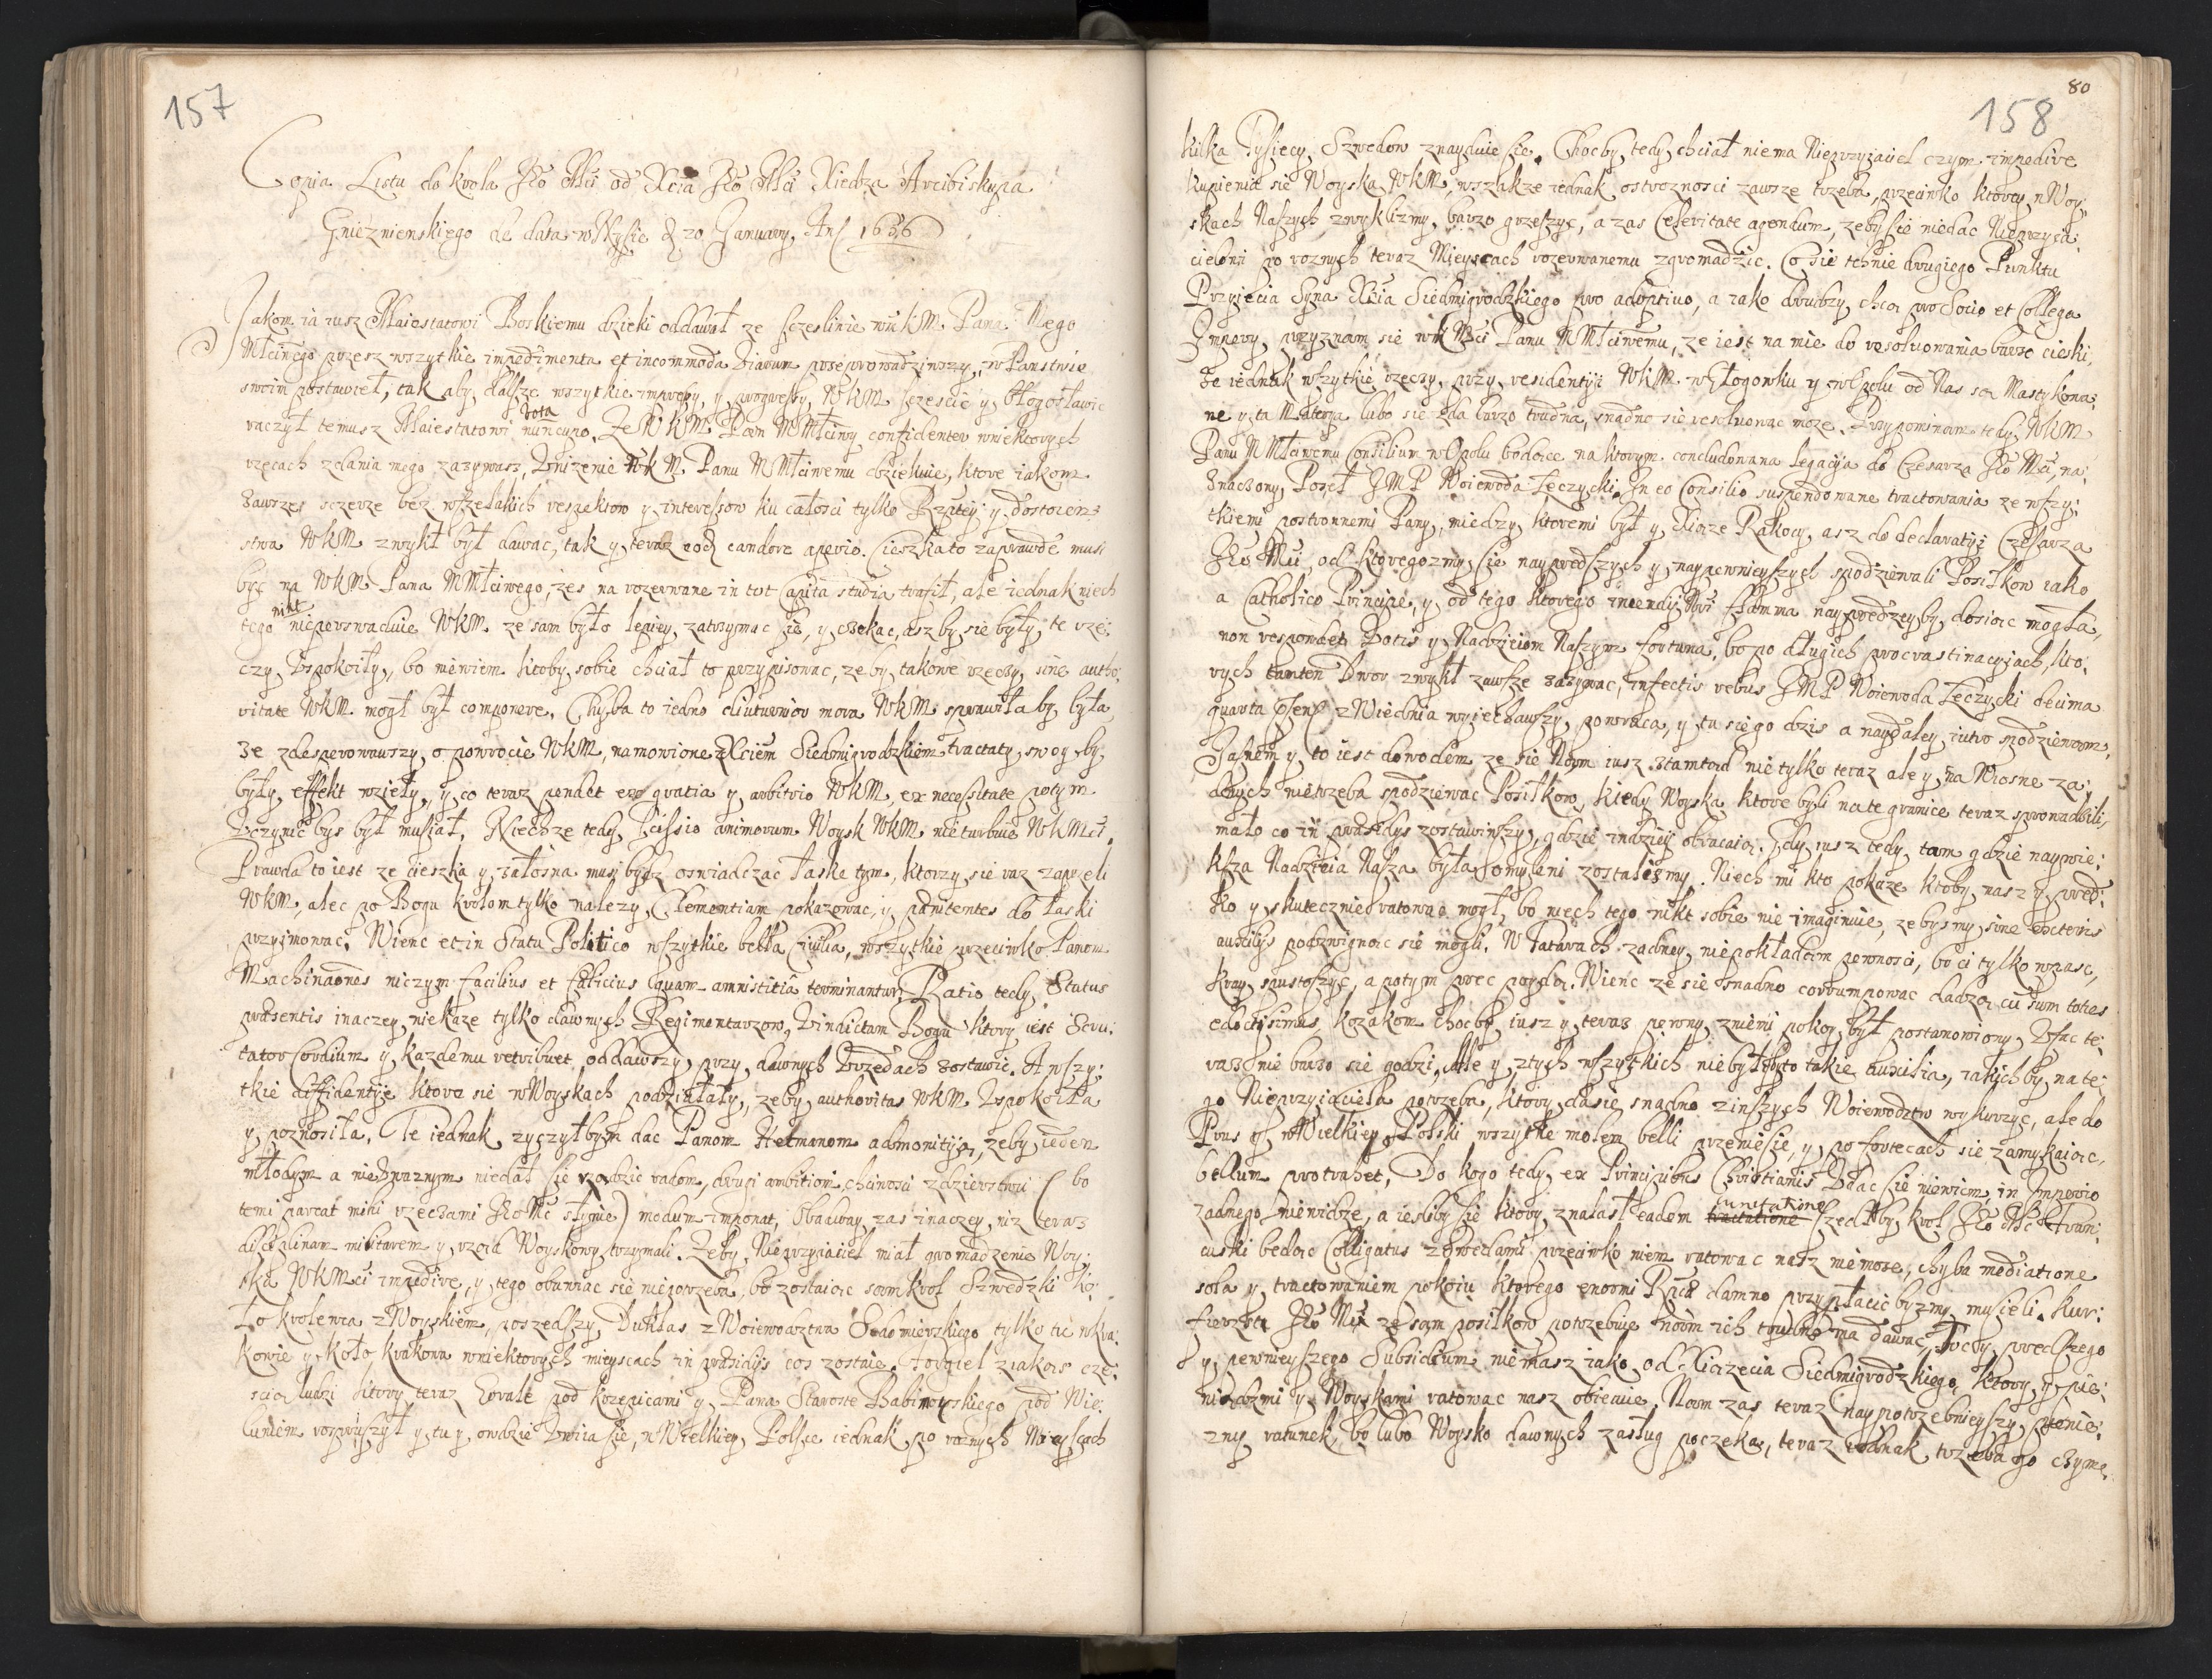 157
Copia Listu do krola Jeo Mci od Xcia Jeo Mci Xiedza Arcibiskupa
Gnieznienskiego de data w Nysie d 20 January, An 1656
Jakom ia iusz Maiestatowi Boskiemu dzieki oddawał ze sczesliwie WKM Pana Mego
Młciwego przesz wszytkie impedimenta et incommoda viarum przeprowadziwszy, w Panstwie
swoim postawieł, tak aby dalsze wszytkie imprezy, y progressy, WKM sczescic y błogosławic
raczył temusz Maiestatowi vota nuncupo. Ze WKM Pan MMłciwy confidenter w niektorych
rzecach zdania mego zazywasz, Unizenie WKM Panu MMłciwemu dziekuie, ktore iakom
zawszes sczerze bez wszelakich respektow y interessow ku całosci tylko Rzptey y dostoien:
stwa WKM zwykł był dawac, tak y teraz eod candore aperio. Cieszkato zaprawde musi
byc na WKM Pana MMłciwego, zes na rozerwane in tot capita studia trafił, ale iednak niech
tego nikt nieperswaduie WKM ze sam było lepiey, zatrzymac sie, y czekac, asz by sie były te rze:
czy, Uspokoiły, bo niewiem ktoby sobie chciał to przypisowac, zeby takowe rzeczy, sine autho:
ritate WKM mogł był componere. Chyba to iedno diuturnior mora WKM sprawiła by była,
ze zdesperowawszy, o powrocie WKM, namowione z Xciem Siedmigrodzkiem tractaty, swoy by
były, effekt wzieły, y co teraz pendet ex gratia y arbitrio WKM, ex necessitate potym
Uczynic bys był musiał. Niechze tedy, scissio animorum Woysk WKM nieturbuie WKMci.
Prawda to iest ze cieszka y załosna musi bydz oswiadczac łaske tym, ktorzy sie raz zaprzeli
WKM, alec po Bogu krolom tylko nalezy, Clementiam pokazowac, y pœnitentes do łaski
przyimowac. Wienc et in Statu Politico wszytkie bella civilia, wszytkie przeciwko Panom
Machinaones niczym facilius et felicius quam amnistitiâ terminantur, Ratio tedy, Status
præsentis inaczey, niekaze tylko dawnych Regimentarzow, Vindictam Bogu ktory iest Scru:
tator Cordium y kazdemu retribuet oddawszy, przy dawnych Urzedach zostawic. A wszy:
tkie diffidentije ktore sie w Woyskach podziałały, zeby authoritas WKM Uspokoiła
y poznosiła. Te iednak zyczyłbym dac Panom Hetmanom admonitiją, zeby ieden
młodym a nieuwaznym niedał sie rządzic radom, drugi ambitioni, chciwosci zdzierstwu (bo
temi parcat mihi rzeczami Jeo Mc słynie) modum imponat, Obadway zas inaczey, niz teraz
disciplinam militarem y rząd Woyskowy trzymali. Zeby Nieprzyiaciel miał gromadzenie Woy:
ska WKMci impedire, y tego obawiac sie niepotrzeba, bo zostaiąc sam krol Szwedzki ko:
ło krolewca z Woyskiem, poszedszy Duklas z Woiewodztwa Sendomierskiego tylko tu w kra:
kowie y koło krakowa w niektorych mieyscach in præsidijs cos zostaie. Forgiel z iakąs czę:
scią ludzi ktory teraz Cvalt pod krzepicami y Pana Staroste Babimoyskiego pod Wie:
luniem rozpruszył y tu y owdzie Uwiia sie, w Wielkiey Polsce iednak po roznych Mieyscach
80
158
kilka Tysiecy Szwedow znayduie sie. Chocby tedy chciał niema Nieprzyiaciel czym impedire
kupienie sie Woyska WKM, wszakze iednak ostroznosci zawsze trzeba, przeciwko ktorey w Woy:
skach Naszych zwyklismy, barzo grzeszyc, a zas Celeritate agendum, zeby sie niedac Nieprzyia:
cielowi po roznych teraz Mieyscach rozerwanemu zgromadzic. Co sie tchnie drugiego Punktu
Przyiecia Syna Xcia Siedmigrodzkiego pro adoptiuo, a iako drudzy chcą pro Socio et Collega
Imperij, przyznam sie WKMci Panu MMłciwemu, ze iest na mie do resoluowania barzo cieski,
Ze iednak wszytkie rzeczy, przy residentiji WKM w Głogowku y w Opolu od Nas są Mastykowa:
ne y ta Materya lubo sie zda barzo trudna, snadno sie resoluowac moze. Przypominam tedy WKM
Panu MMłciwemu Consilium w Opolu bedące na ktorym concludowana legacija do Cesarza Jeo Mci, na:
znaczony, Poseł JMP Woiewoda Łeczycki. In eo Consilio suspendowane tractowania ze wszy:
tkiemi postronnemi Pany, miedzy ktoremi był y Xiąze Rakocy, asz do declaratiji Cesarza
Jeo Mci, od ktoregozmy sie nayprędszych y naypewnieyszych spodziewali Posiłkow iako
a Catholico Principe, y od tego ktorego incendij Nri flamma nayprędzey by dosiąc mogła,
non respondet Votis y Nadzieiom Naszym fortuna, bo po długich procrastinacyjach, kto:
rych tamten Dwor zwykł zawsze zazywac, infectis rebus JMP Woiewoda Łeczycki decima
quarta psen z Wiednia wyiechawszy, powraca, y tu siego dzis a naydaley iutro spodziewam.
Jasnem y to iest dowodem ze sie Nam iusz ztamtąd nie tylko teraz ale y na Wiosne za:
dnych nietrzeba spodziewac Posiłkow, kiedy Woyska ktore byli na te granice teraz sprowadzili,
mało co in præsidys zostawiwszy, gdzie indziey obracaią. Gdy iusz tedy, tam gdzie naywie:
ksza Nadzieia Nasza była omyleni zostalismy. Niech mi kto pokaze ktoby nasz y pred:
ko y skutecznie ratowac mogł, bo niech tego nikt sobie nie imaginuie, zebysmy sine exteris
auxilijs podzwignąc sie mogli. W Tatarach zadney niepokładam pewnosci, bo ci tylko wpasc,
kray spustoszyc, a potym precz poydą. Wienc ze sie snadno corrumpowac dadzą cu sum toties
edoctissimus, kozakom chocby iusz y teraz pewny z niemi pokoy był postanowiony, Ufac te:
raz nie barzo sie godzi, Ale y z tych wszytkich niebyłoby to takie auxilia, iakich by na te:
go Nieprzyiaciela potrzeba, ktory da sie snadno z inszych Woiewodztw wykurzyc, ale do
Prus y w Wielkiey Polski wszytke molem belli przeniesie, y po fortecach sie zamykaiąc,
bellum protrahet. Do kogo tedy, ex Principibus Christianis Udac sie niewiem, in Imperio
zadnego niewidze, a iesliby sie ktory znalasł eadem tractatione cunctatione szedłby, krol Jeo Mc Fran:
cuski bedąc Colligatus z Szwedami przeciwko niem ratowac nasz niemoze, chyba mediatione
sola y tractowaniem pokoiu ktorego enormi Rptæ damno przypłacic byzmy musieli. kur:
firszta Jeo Mci ze sam posiłkow potrzebuie Nam ich trudno ma dawac. Tedy predszego
y pewnieyszego Subsidium niemasz iako od Xiązecia Siedmigrodzkiego, ktory y pie:
niądzmi y Woyskami ratowac nasz obiecuie. Nam zas teraz naypotrzebnieyszy pienie:
zny ratunek, bo lubo Woysko dawnych zasług poczeka, teraz iednak trzeba go czyme.